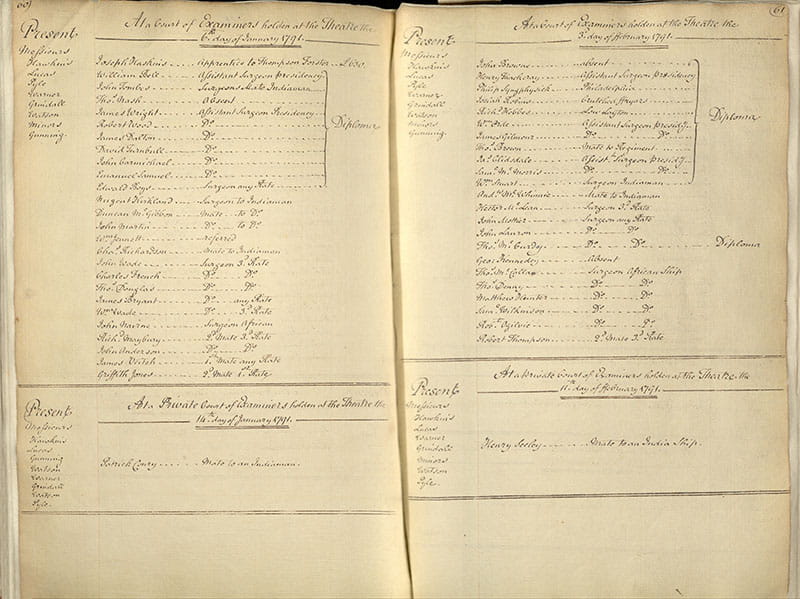 60)
At a Court of Examiners holden at the Theatre the
6th day of January 1791.
Present
Messieurs
Hawkins
Lucas
Pyle
Warner
Grindall
Watson
Minors
Gunning.
Joseph Hoskins Apprentice to Thompson Forster
William Bell Assistant Surgeon presidency
John Tombs Surgeons Mate Indiaman
Thos. Nash Absent
James Wright Assistant Surgeon Presidency
Robert Wood Do.
James Dalton Do.
David Turnbull Do.
John Carmichael Do.
Emanuel Samuel Do.
Edward Roys Surgeon any Rate
Diploma
Nugent Kirkland Surgeon to Indiaman
Duncan McGibbon Mate to Do.
John Martin Do. to Do.
Wm. Jennett referred
Chas. Richardson Mate to Indiaman
John Wade Surgeon 3d. Rate
Charles French Do. Do.
Thos. Douglas Do. Do.
James Bryant Do. any Rate
Wm. Wade Do. 3d. Rate
John Nairne Surgeon African
Richd. Maybury 2d. Mate 3d. Rate
John Anderson Do. Do.
James Veitch 1st. Mate any Rate
Griffith Jones 2d. Mate 1st. Rate
At a Private Court of Examiners holden at the Theatre the
14th. day of January 1791.
Present
Messieurs
Hawkins
Lucas
Gunning
Watson
Warner
Grindall
Watson
Pyle.
Patrick Conry Mate to an Indiaman.
61
At a Court of Examiners holden at the Theatre the
3d. day of February 1791.
Present
Messieurs
Hawkins
Lucas
Pyle
Warner
Grindall
Watson
Minors
Gunning.
John Browne absent
Henry Thackeray Assistant Surgeon presidency
Philip Syng Physick Philadelphia
Josiah Robins Crutched fryars
Richd. Hebbes Low Layton
Wm. Orde Assistant Surgeon presidy.
James Gilmour Do. Do.
Thos. Brown Mate to Regiment
Jas. Glidsdale Assist. Surgeon presidy.
Saml. Mc. Morris Do. Do.
Wm. Stuart Surgeon Indiaman
Diploma
Andw. McWhinnie Mate to Indiaman
Hector McLean Surgeon 3d. Rate
John Mottier Surgeon any Rate
John Lauron Do. Do.
Thos. McCurdy Do. Do. Diploma
Geo. Kennedey Absent
Thos. McCallan Surgeon African Ship
Thos. Denny Do. Do.
Matthew Hunter Do. Do.
Saml. Wilkinson Do. Do.
Robt. Ogilvie Do. Do.
Robert Thompson 2d. Mate 3d. Rate
At a private Court of Examiners holden at the Theatre the
11th. day of February 1791.
Present
Messieurs
Hawkins
Lucas
Warner
Grindall
Minors
Watson
Pyle.
Henry Seeley Mate to an India Ship.